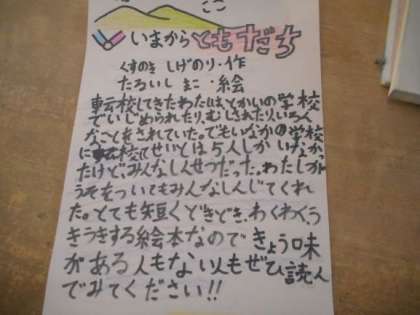 いまからともだち
くすのき しげのり・作
たるいし まこ・絵
転校してきたわたしは、とかいの学校
でいじめられたり、むしされたり、いろん
なことをされていた。でもいなかの学校
に転校してせいとは5人しかいなか
たけど、みんなしんせつだった。わたしが
うそをついてもみんなしんじてくれ
た。とても短くどきどき、わくわくう
きうきする絵本なのできょう味
がある人もない人もぜひ読ん
でみてください!!